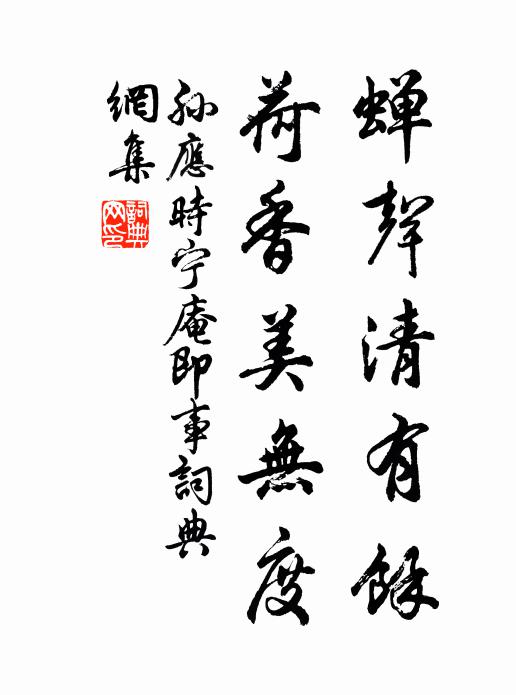 蟬聲清有餘
荷香美無度
孫應時宁庵即事詞典
網集
詞典
网印